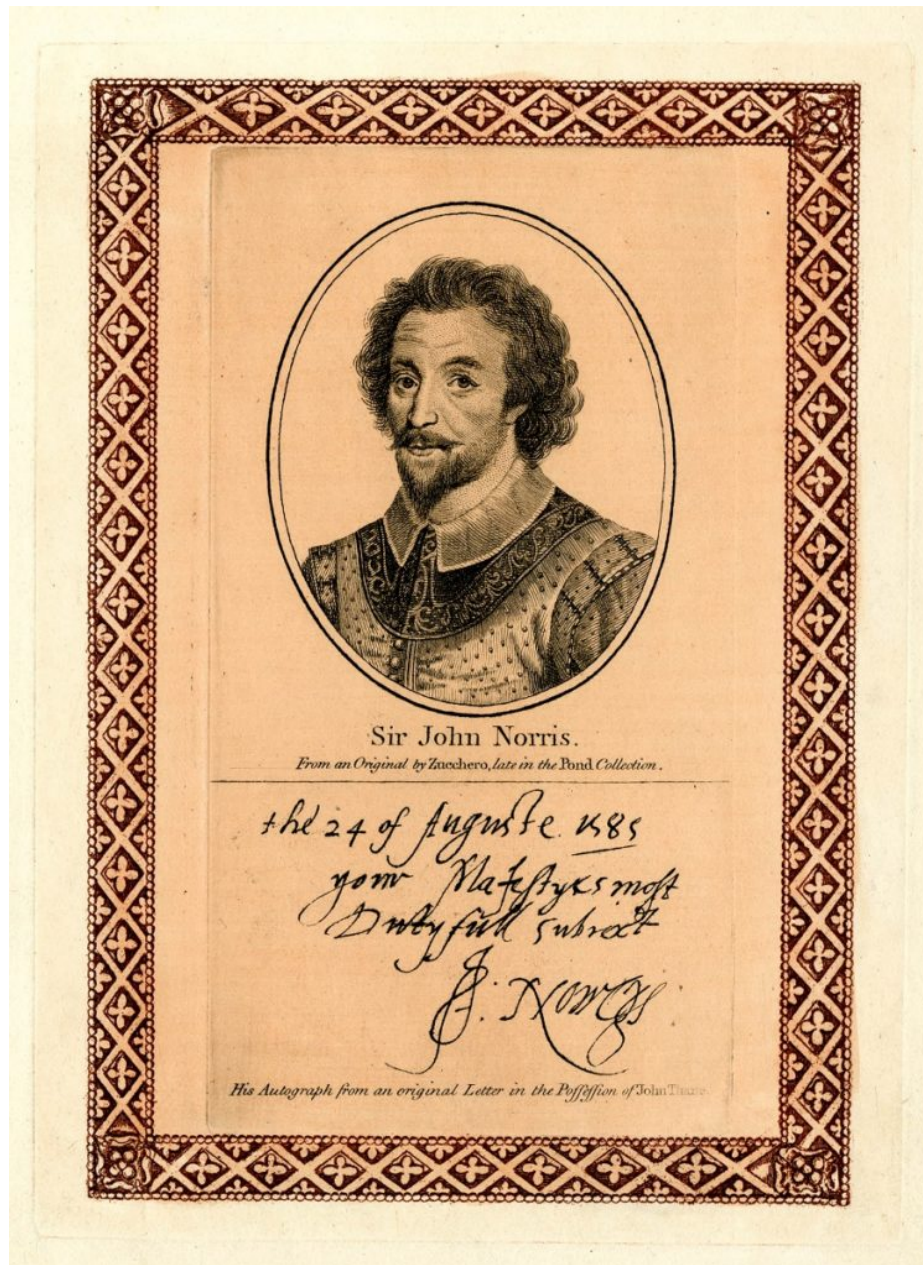 Sir John Norris.
From an Original by Zucchero, late in the Pond Collection.
the 24 of Auguste 1585
your Maiestyes most
Dutyfull subiect
J. Norreys
His Autograph from an original Letter in the Poſſeſſion of John Thane